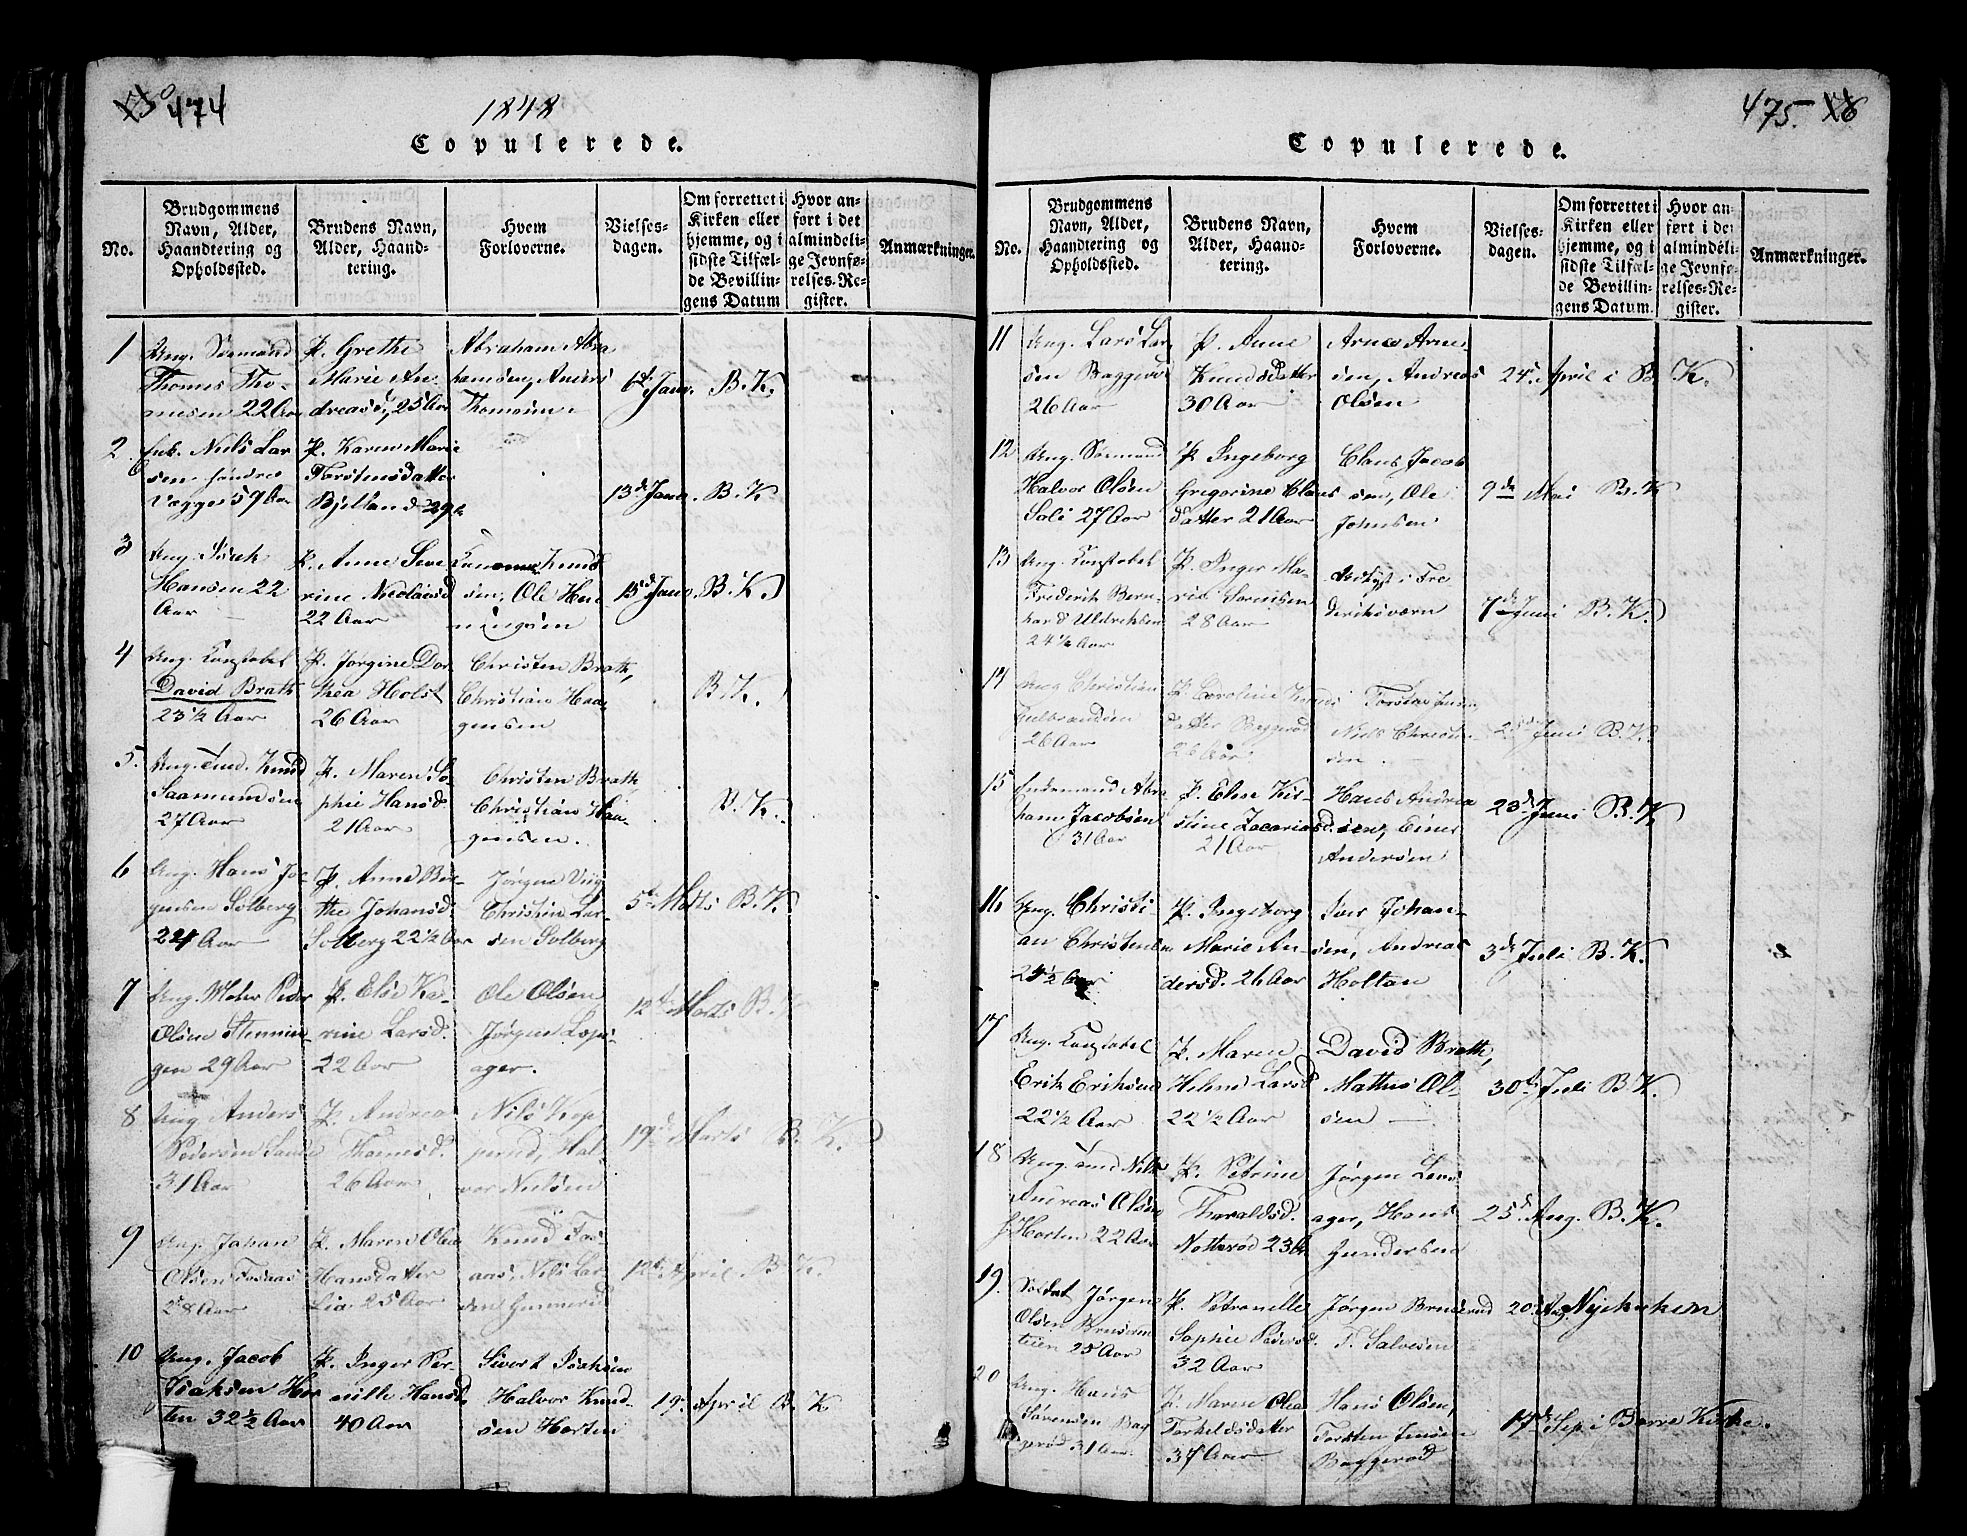 474
1848
Copulerede.
No.
Brudgommens
Navn, Alder,
Haandtering og
Opholdssted.
Brudens Navn,
Alder, Haand-
tering.
Hvem
Forloverne.
Vielses-
dagen.
Om forrettet i
Kirken eller
hjemme, og i
sidste Tilfæl-
de Bevillin-
gens Datum
Hvor an-
ført i det
almindeli-
ge Jevnfø-
relses-Re-
gister.
Anmærkninger.
1
Ung. Sømand
Thomes Tho-
mesen 22 Aar
P. Grethe
Marie An-
dreasd, 25 Aar
Abraham Abra
hamsen, Anders
Thomesen
6te Janr. B. K.
2
Enk. Niels Lar
sen søndre
59 Aar
P. Karen Marie
Torstensdatter
Bjelland 29
13de Janr. B. K
3
Ung. Isach
Hansen 22
Aar
P. Anne Seve
rine Nicolaisd
22 Aar
Knud
sen, Ole Hen
ningsen
15de Janr. B. K.
4
Ung. Constabel
David Brath
23 1/2 Aar
P. Jørgine Dor
thea Holst
26 Aar
Christen Brath,
Christian Haa
gensen
B. K.
5.
Ung. Knud
Saamundsen
27 Aar
P. Maren So-
phie Hansd
21 Aar
Christen Brath
Christian Haa-
gensen.
B. K.
6
Ung. Hans Jør
gensen Solberg
24 Aar
P. Anne Bir-
the Johansd.
Solberg 22 1/2 Aar
Jørgen
Christen Lar-
sen Solberg
5te Marts B. K
7
Ung. Peder
Olsen
29 Aar
P. Else Ka-
rine Larsd.
22 Aar
Ole Olsen
Jørgen
ager.
12te Marts B. K
8
Ung. Anders
Pedersen
31 Aar
P. Andrea
Thomesd.
26 Aar
Nils Kop
perud, Hal-
vor Nielsen
19de Marts B. K.
9
Ung. Johan
Olsen Fosaas
28 Aar
P. Maren Olea
Hansdatter
Lia 25 Aar
Knud Fos
aas, Nils Lar
sen
12te April B. K.
10
Ung. Jacob
Isaksen Hor
ten 32 1/2 Aar
P. Inger Per-
nille Hansd.
40 Aar
Sivert Isaksen
Halvor Knud-
sen Horten
19. April B. K
475.
Copulerede.
No.
Brudgommens
Navn, Alder,
Haandtering og
Opholdssted.
Brudens Navn,
Alder, Haand-
tering.
Hvem
Forloverne.
Vielses-
dagen.
Om forrettet i
Kirken eller
hjemme, og i
sidste Tilfæl-
de Bevillin-
gens Datum.
Hvor an-
ført i det
almindeli-
ge Jevnfø-
relses-Re-
gister.
Anmærkninger.
11
Ung. Lars Lar
sen Baggerød
26 Aar
P. Anne
Knudsdatter
30 Aar
Arne Arne-
sen, Andreas
Olsen
24de April i B. K.
12
Ung. Sømand
Halvor Olsen
Soli 27 Aar
P. Ingeborg
Gregorine Claus
datter 21 Aar
Claus Jacob
sen, Ole
Johnsen
9de Mai B. K
13
Ung. Constabel
Frederik Bern-
hard Uldriksen
24 1/2 Aar
P. Inger Ma-
rie Sørensen
28 Aar
Udlyst i Fre
deriksværn
7de Juni B. K.
14
Ung Christian
Gulbrandsen
26 Aar
P. Caroline Knuds
datter Baggerød
26 Aar
Torsten Jensen
Niels Christi-
sen
Juni B. K.
15
Enkemand Abra
ham Jacobsen
31 Aar
P. Else Kir-
stine Zacariasd.
21 Aar
Hans Andrea
sen, Einer
Andersen
23de Juni B. K
16
Ung. Christi
an Christens
24 1/2 Aar
P. Ingeborg
Marie An-
dersd. 26 Aar
Iver Johan-
sen, Andreas
Holtan
3de Juli B. K.
17
Ung. Constabel
Erik Eriksen
22 1/2 Aar
P. Maren
Helene Larsd
22 1/2 Aar
David Brath,
Mathis Ol-
sen
30te Juli B. K.
18
Ung. Nils
Andreas Olsen
Horten 22 Aar
P. Petrine
Tharaldsd.
Notterød 23 Aar
Jørgen
ager, Hans
Gundersen
25de Aug. B. K.
19.
Soldat Jørgen
Olsen
25 Aar
P. Petronelle
Sophie Pedersd.
32 Aar
Jørgen
T. Salvesen
20de Aug Nykirken
20
Ung. Hans
Sørensen Bag
gerød 31 Aar.
P. Maren Olea
Torkildsdatter
37 Aar
Hans Olsen,
Torsten Jensen
Baggerød
17de Sep i Borre Kirke.